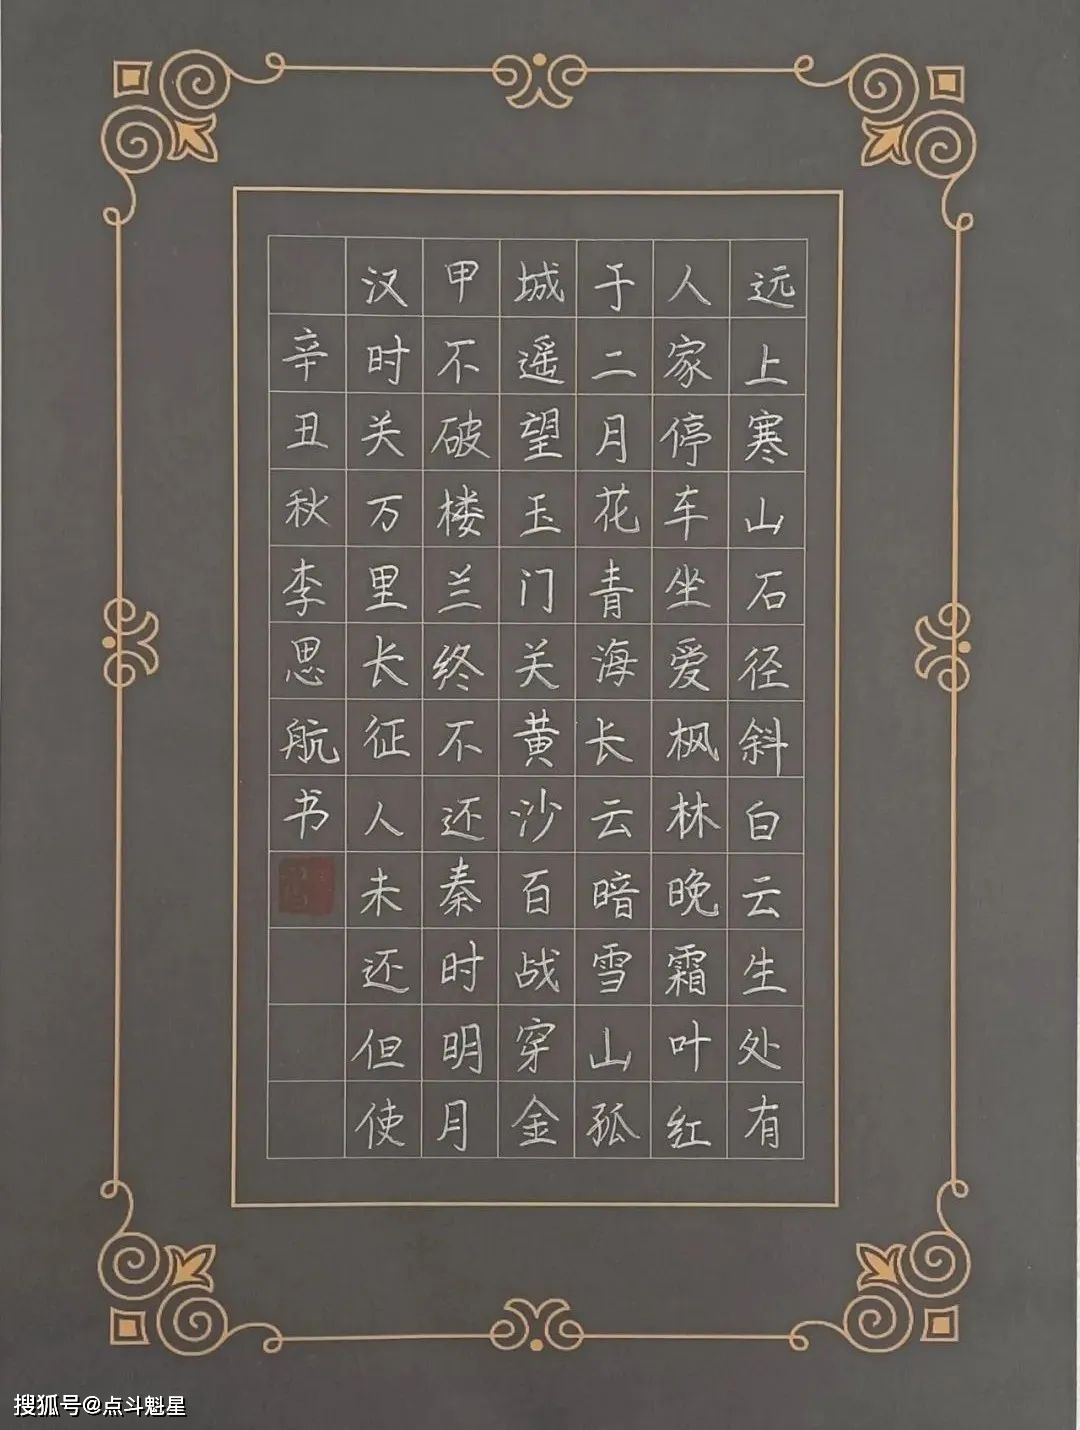 远上寒山石径斜白云生处有
人家停车坐爱枫林晚霜叶红
于二月花青海长云暗雪山孤
城遥望玉门关黄沙百战穿金
甲不破楼兰终不还秦时明月
汉时关万里长征人未还但使
辛丑秋李思航书
搜狐号@点斗魁星